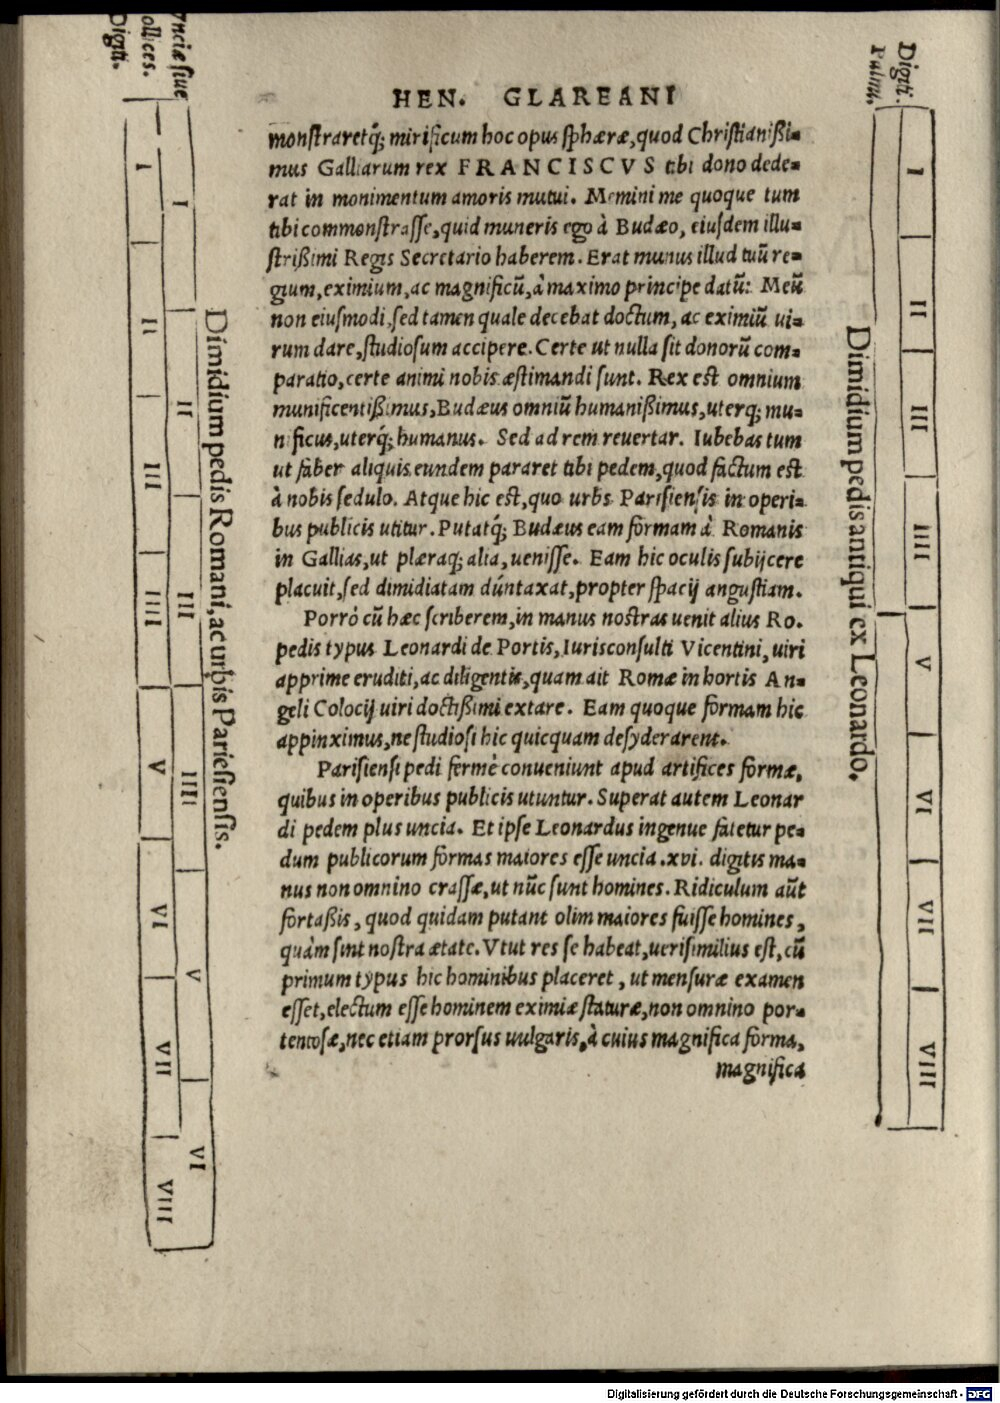 HEN. GLAREANI
monſtraretq́; mirificum hoc opus ſphæræ, quod Chriſtianißi-
mus Galliarum rex FRANCISCVS tibi dono dede-
rat in monimentum amoris mutui. Memini me quoque tum
tibi commonſtraſſe, quid muneris ego à Budæo, eiuſdem illu-
ſtrißimi Regis Secretario haberem. Erat munus illud tuũ re-
gium, eximium, ac magnificũ, à maximo principe datũ: Meũ
non eiuſmodi, ſed tamen quale decebat doctum, ac eximiũ ui-
rum dare, ſtudioſum accipere. Certe ut nulla ſit donorũ com-
paratio, certe animi nobis æſtimandi ſunt. Rex eſt omnium
munificentißimus, Budæus omniũ humanißimus, uterq; mu-
nificus, uterq́; humanus. Sed ad rem reuertar. Iubebas tum
ut faber aliquis eundem pararet tibi pedem, quod factum eſt
à nobis ſedulo. Atque hic eſt, quo urbs Pariſienſis in operi-
bus publicis utitur. Putatq́; Budæus eam formam à Romanis
in Gallias, ut plæraq; alia, ueniſſe. Eam hic oculis ſubijcere
placuit, ſed dimidiatam dúntaxat, propter ſpacij anguſtiam.
Porrò cũ hæc ſcriberem, in manus noſtras uenit alius Ro.
pedis typus Leonardi de Portis, Iurisconſulti Vicentini, uiri
apprime eruditi, ac diligentis, quam ait Romæ in hortis An-
geli Colocij uiri doctißimi extare. Eam quoque formam hic
appinximus, ne ſtudioſi hic quicquam deſyderarent.
Pariſienſi pedi fermè conueniunt apud artifices formæ,
quibus in operibus publicis utuntur. Superat autem Leonar
di pedem plus uncia. Et ipſe Leonardus ingenue fatetur pe-
dum publicorum formas maiores eſſe uncia. xvi. digitis ma-
nus non omnino craſſæ, ut nũc ſunt homines. Ridiculum aũt
fortaßis, quod quidam putant olim maiores fuiſſe homines,
quàm ſint noſtra ætate. Vtut res ſe habeat, ueriſimilius eſt, cũ
primum typus hic hominibus placeret, ut menſuræ examen
eſſet, electum eſſe hominem eximiæ ſtaturæ, non omnino por-
tentoſæ, nec etiam prorſus uulgaris, à cuius magnifica forma,
magnifica
ollices.
Digiti.
I
II
III
IIII
V
VI
VII
VIII
I
II
III
IIII
V
VI
Dimidium pedis Romani, ac urbis Parieſienſis.
Digiti.
I
II
III
IIII
V
VI
VII
VIII
Dimidium pedis antiqui ex Leonardo.
Digitalisierung gefördert durch die Deutsche Forschungsgemeinschaft - DFG